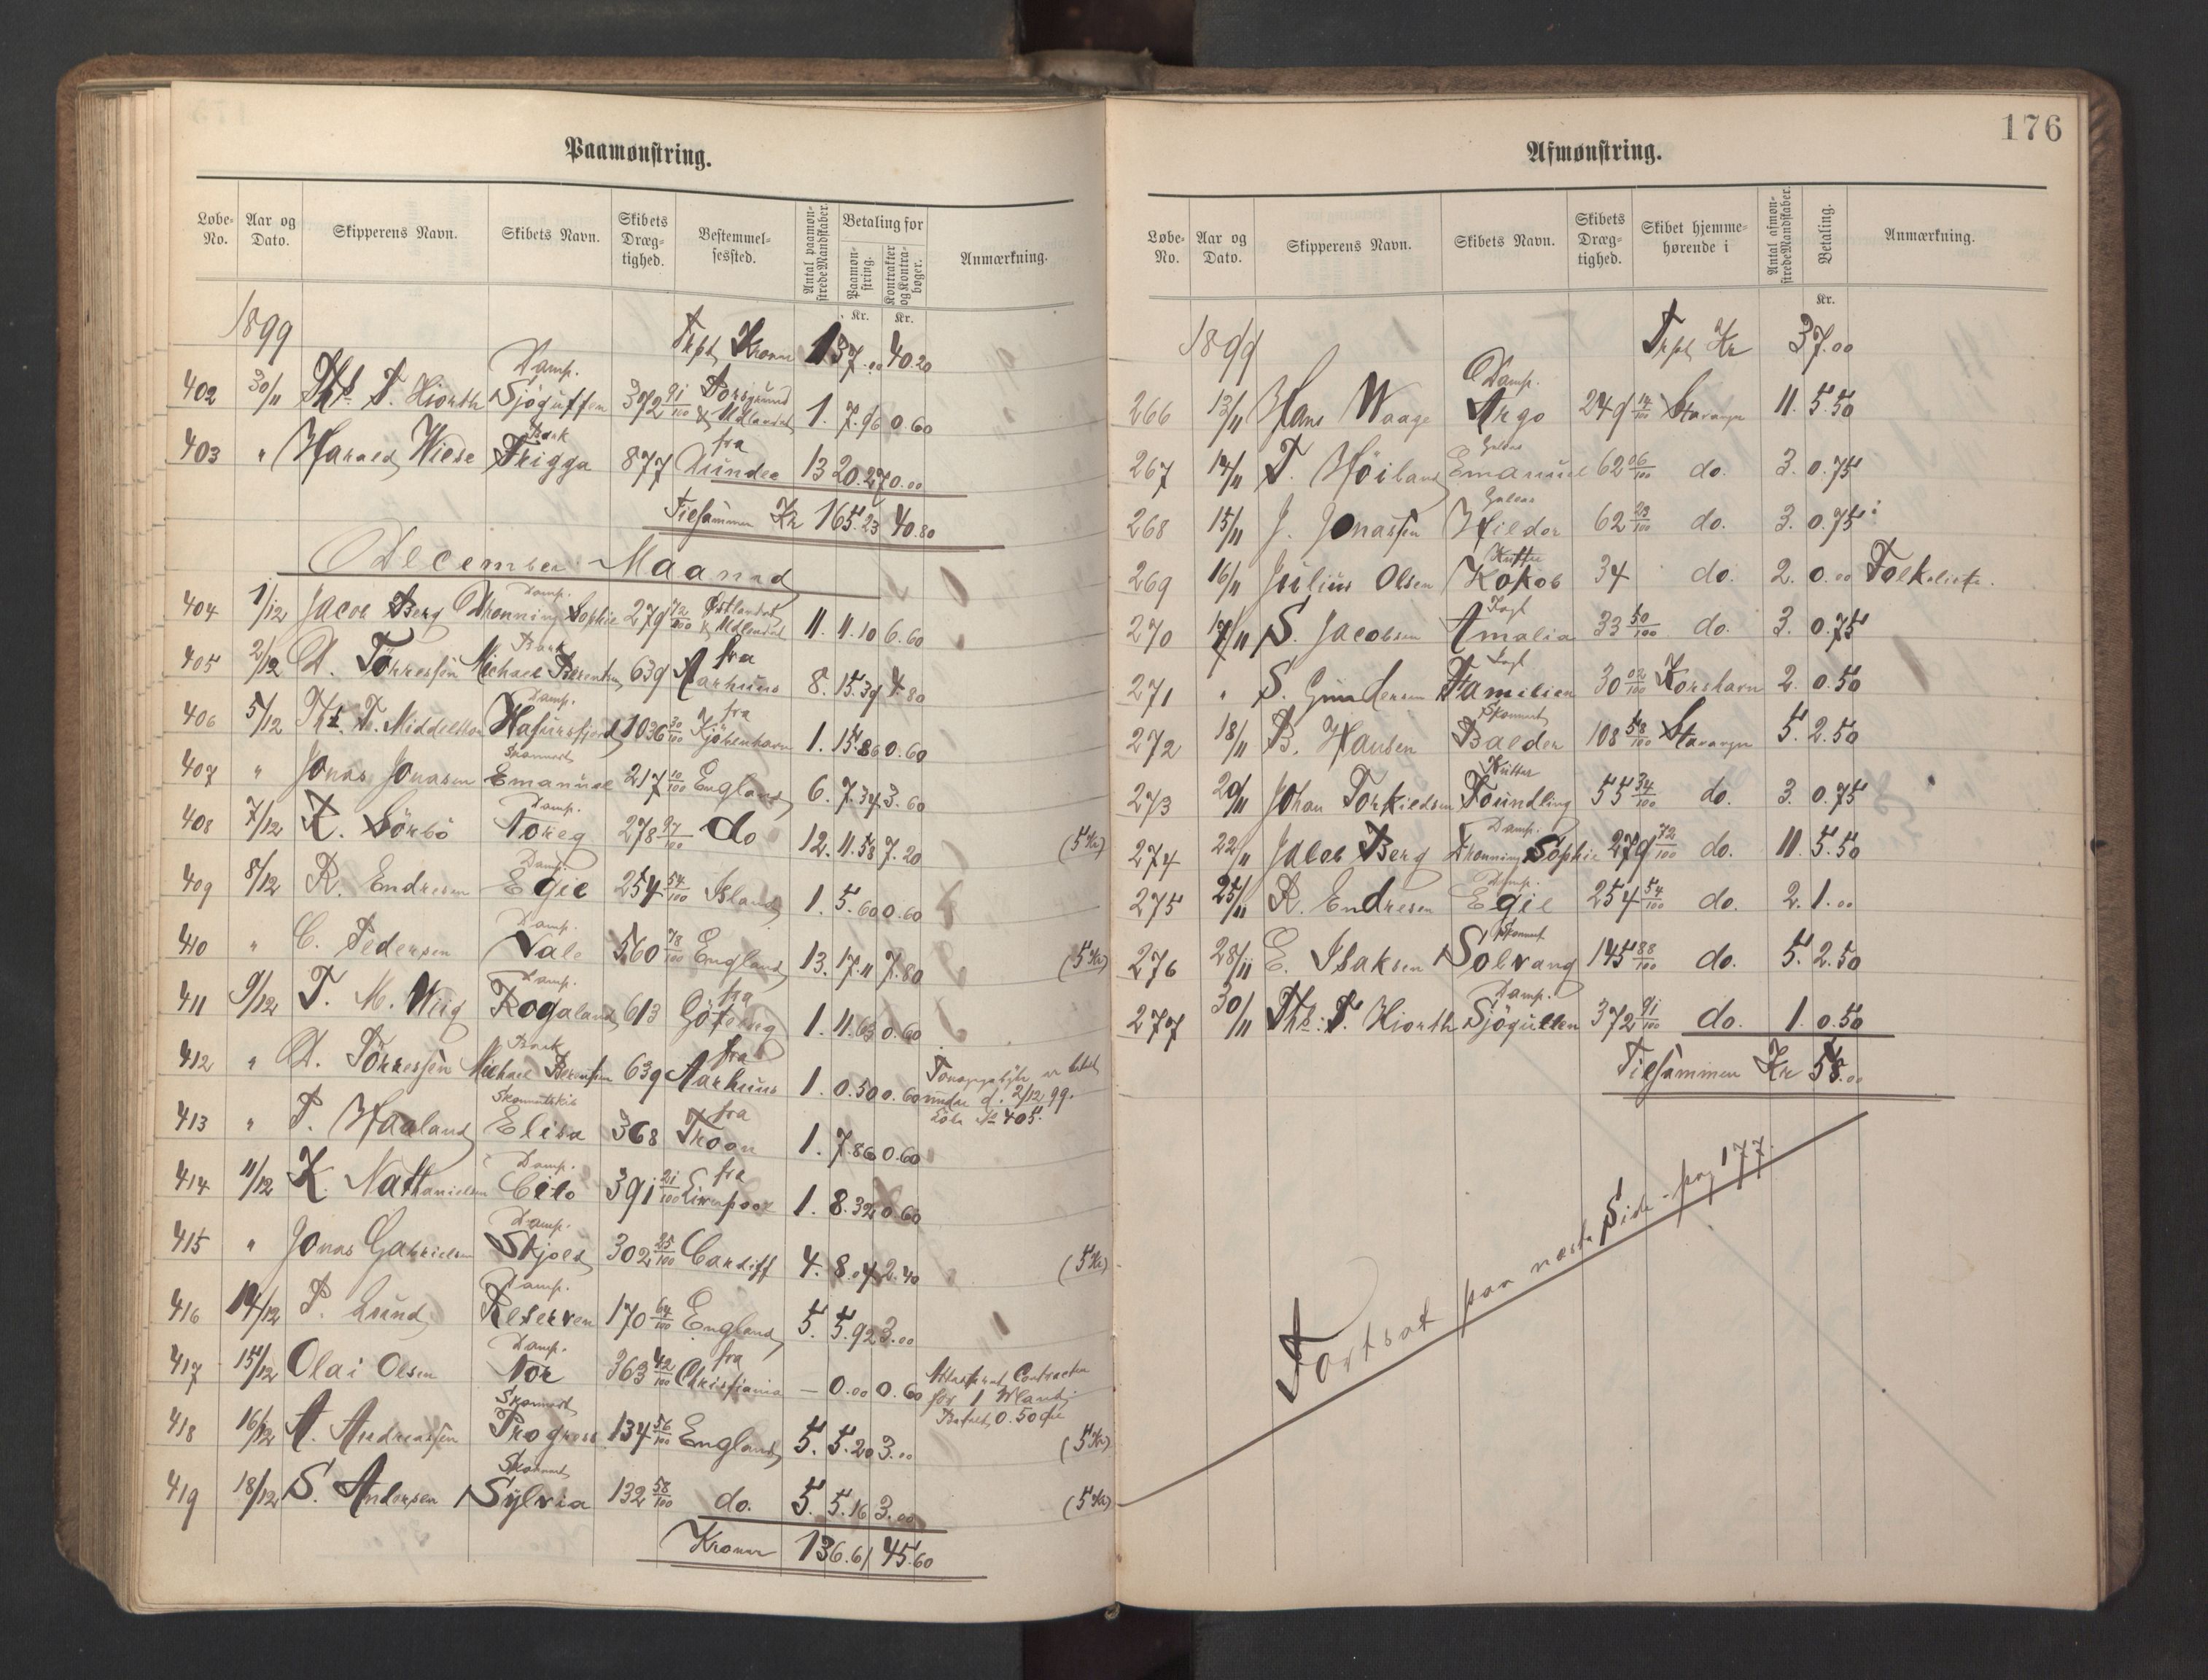 Paamønstring.
Løbe-No. Aar og Dato. Skipperens Navn. Skibets Navn. Skibets Dræg-tighed. Bestemmel-sessted. Antal paamøn-strede Mandskaber. Betaling for Paamøn-string. Kontrakter og Kontra-bøger. Anmærkning.
Kr. Kr.
1899 Trpt Kroner 137.00 40.20
402 30/11 Ths. T. Hiorth Damp. Sjøgutten 372 91/100 Porsgrund & Udlandet 1. 7.96 0.60
403 " Harald Wiese Bark Frigga 877 fra Dundee 13 20.27 0.00
Tilsammen Kr 165.23 40.80
December Maaned
404 1/12 Jacob Berg Damp. Dronning Sophie 279 72/100 Østlandet & Udlandet 11. 11.10 6.60
405 2/12 D. Törressen Bark Michael Berentsen 639 fra Aarhuus 8. 15.39 4.80
406 5/12 Ths. Th. Middelthon Damp. Hafursfjord 1036 30/100 fra Kjöbenhavn 1. 15.86 0.60
407 " Jonas Jonasen Skonnert Emanuel 217 10/100 England 6. 7.34 3.60
408 7/12 K. Sörbö Damp. Noreg 278 97/100 do 12. 11.58 7.20 (5 Kr)
409 8/12 R. Endresen Damp. Egil 254 54/100 Island 1. 5.60 0.60
410 " C. Pedersen Damp. Vale 560 78/100 England 13. 17.11 7.80 (5 Kr)
411 9/12 T. M. Wiig Damp. Rogaland 613 fra Göteborg 1. 11.63 0.60
412 " D. Törressen Bark Michael Berentsen 639 fra Aarhuus 1 0.50 0.60 er betalt under d. 2/12 99. Löbe No 405.
413 " T. Haaland Skonnertskib Elisa 368 fra Troon 1. 7.86 0.60
414 11/12 K. Nathanielsen Damp. Cito 391 21/100 fra Liverpool 1. 8.32 0.60
415 " Jonas Gabrielsen Damp. Skjold 302 25/100 Cardiff 4. 8.04 2.40 (5 Kr)
416 14/12 P. Lund Damp. Reserven 170 64/100 England 5. 5.92 3.00
417 15/12 Olai Olsen Damp. Nor 363 42/100 fra Christiania — 0.00 0.60 Contracten for 1 Mand. Betalt 0.50 Øre
418 16/12 A. Andreassen Skonnert Progress 134 56/100 England 5. 5.20 3.00 (5 Kr)
419 18/12 S. Andersen Skonnert Sylvia 132 58/100 do. 5. 5.16 3.00 (5 Kr)
Kroner 136.61 45.60
176
Afmønstring.
Løbe-No. Aar og Dato. Skipperens Navn. Skibets Navn. Skibets Dræg-tighed. Skibet hjemme-hørende i Antal afmøn-strede Mandskaber. Betaling. Anmærkning.
Kr.
1899 Trpt Kr 37.00
266 13/11 Hans Waage Damp. Argo 249 14/100 Stavanger 11. 5.50
267 14/11 T. Höiland Galeas Emanuel 62 06/100 do. 3. 0.75
268 15/11 J. Jonassen Galeas Hildor 62 23/100 do. 3. 0.75
269 16/11 Julius Olsen Kutter Kokob 34 do. 2. 0.00 Folkeliste.
270 17/11 S. Jacobsen Jagt Amalia 33 50/100 do. 3. 0.75
271 " S. Gundersen Jagt Familien 30 02/100 Korshavn 2. 0.50
272 18/11 B. Hansen Skonnert Balder 108 58/100 Stavanger 5. 2.50
273 20/11 Johan Torkildsen Kutter Foundling 55 34/100 do. 3. 0.75
274 22/11 Jacob Berg Damp. Dronning Sophie 279 72/100 do. 11. 5.50
275 25/11 R. Endresen Damp. Egil 254 54/100 do. 2. 1.00
276 28/11 E. Isaksen Skonnert Solvang 145 88/100 do. 5. 2.50
277 30/11 Ths. T. Hiorth Damp. Sjøgutten 372 91/100 do. 1. 0.50
Tilsammen Kr 58.00
Fortsat paa næste Side - pag 177.